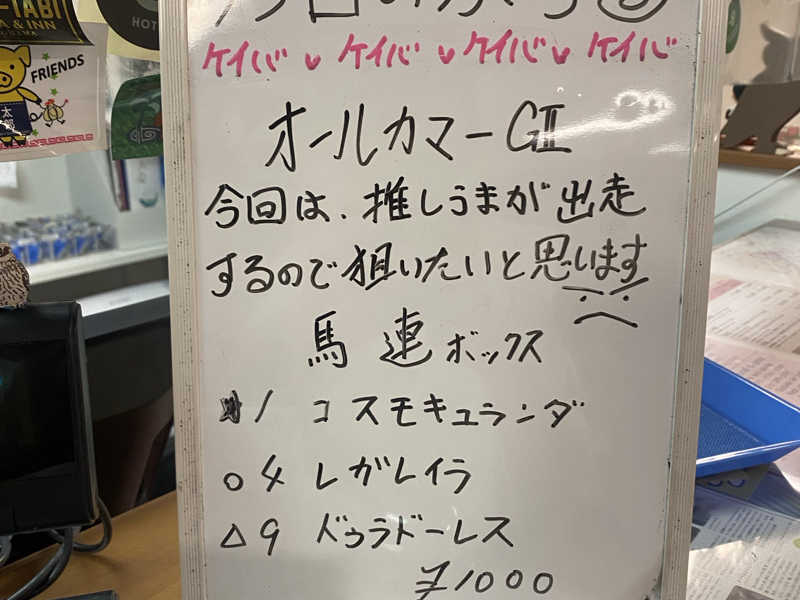 TABI
& INN
HOT
FRIENDS
ケイバ♥ケイバ♥ケイバ♥ケイバ
オールカマーGⅡ
今回は、推しうまが出走
するので狙いたいと思います
馬連ボックス
1 コスモキュランダ
○4 レガレイラ
△9 ドゥラドーレス
¥1000